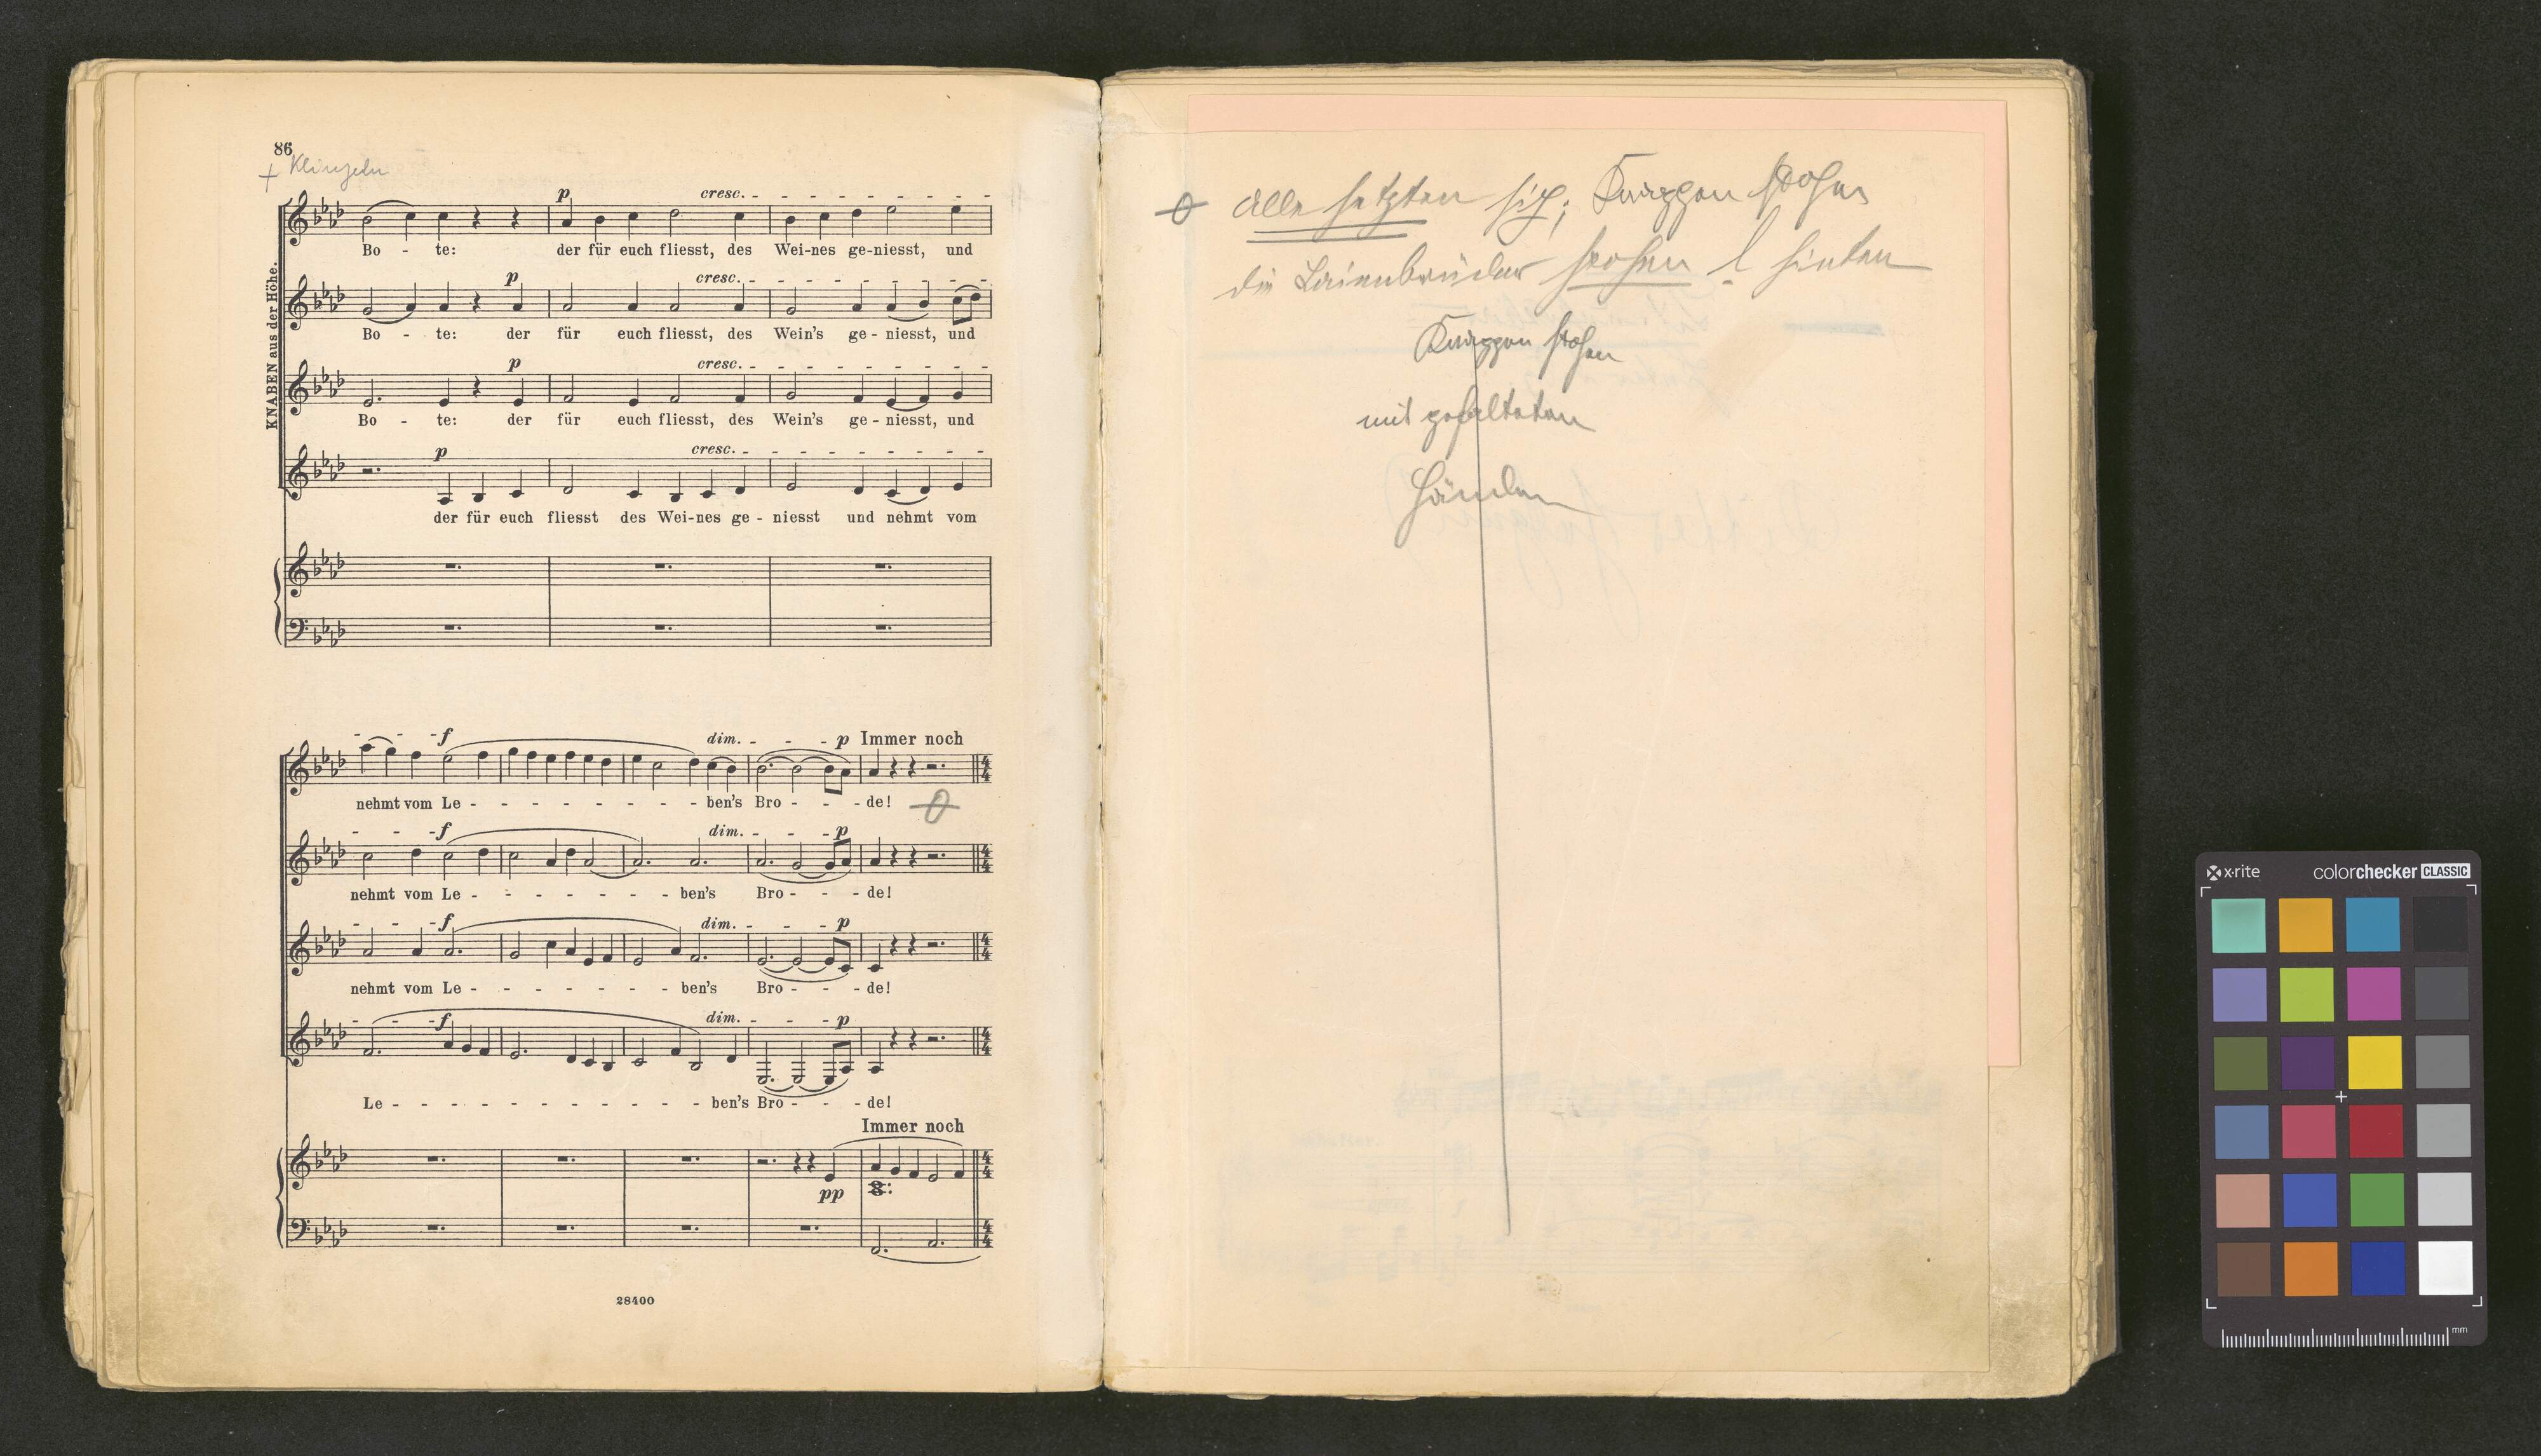 86
+ Klingeln
KNABEN aus der Höhe.
p cresc.
Bo - te: der für euch fliesst, des Wei-nes ge-niesst, und
p cresc.
Bo - te: der für euch fliesst, des Wein's ge - niesst, und
p cresc.
Bo - te: der für euch fliesst, des Wein's ge - niesst, und
p cresc.
der für euch fliesst des Wei-nes ge - niesst und nehmt vom
f dim. p Immer noch
nehmt vom Le - ben's Bro - de!
f dim. p
nehmt vom Le - ben's Bro - de!
f dim. p
nehmt vom Le - ben's Bro - de!
f dim. p
Le - ben's Bro - de!
Immer noch
pp
28400
Alle setzten sich; Knappen stehen
die Laienbrüder stehen l hinten
Knappen stehen
mit gefalteten
Händen
x-rite colorchecker CLASSIC
mm